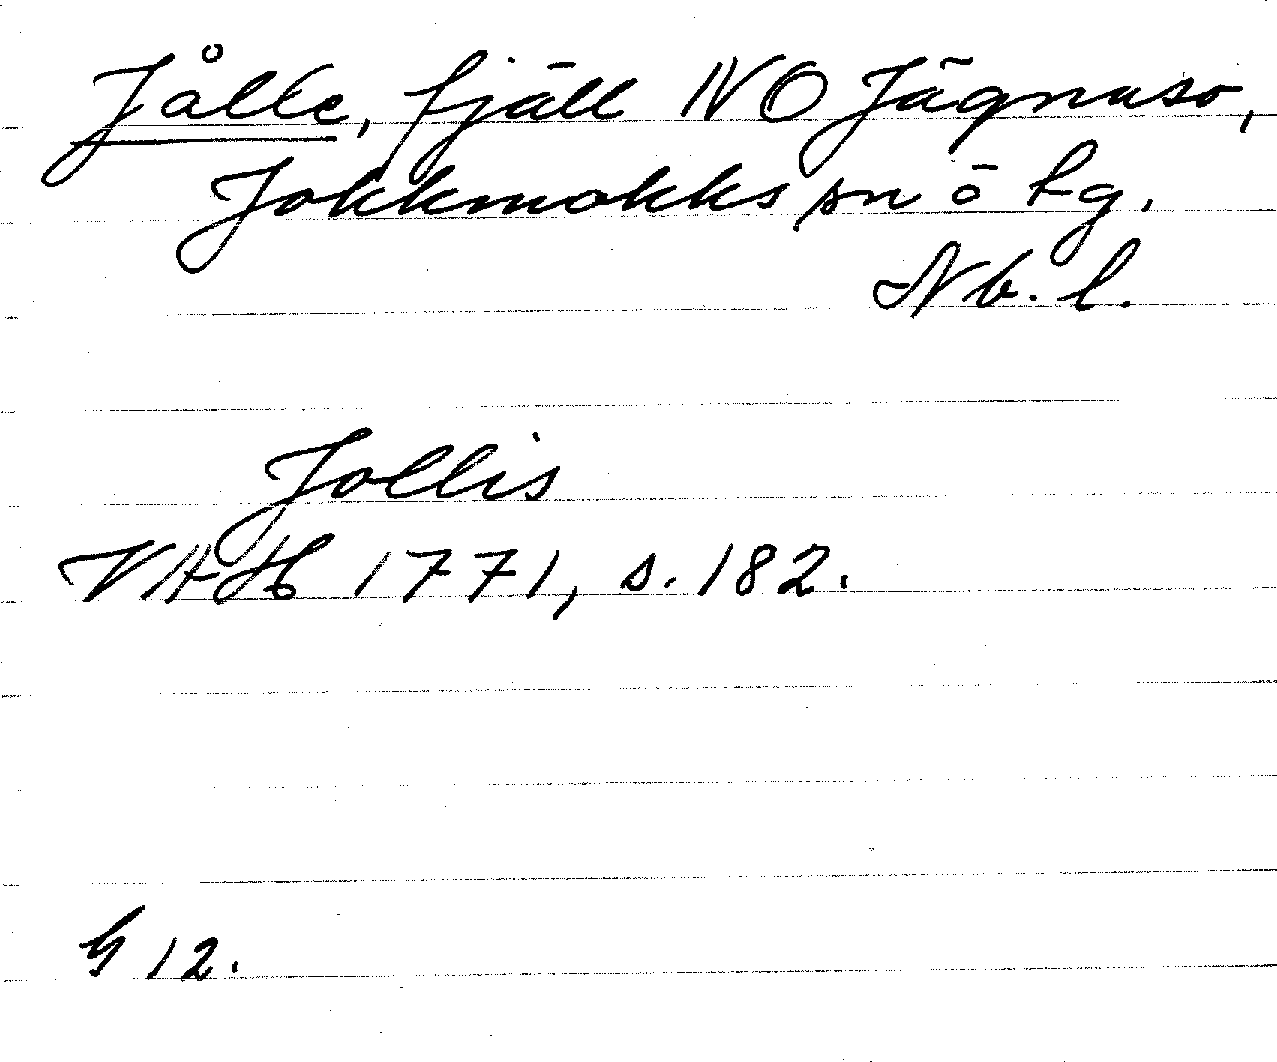 Jålle, fjäll NO Jägnaso,
Jokkmokks sn ö tg.
Nb. l.
Jollis
VAH 1771, s. 182.
G 12.